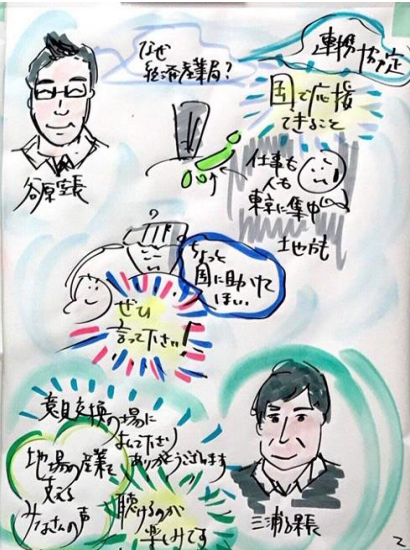 なぜ
経済産業局?
連携協定
国で応援
できること
谷原室長
仕事も
人も
東京に集中
土地も
ちょっと
国に助けて
ほしい
ぜひ
言って下さい!
意見交換の場に
よんで下さり
ありがとうございます
地場の産業を
支える
みなさんの声
聴けるのが
楽しみです
三浦課長
2